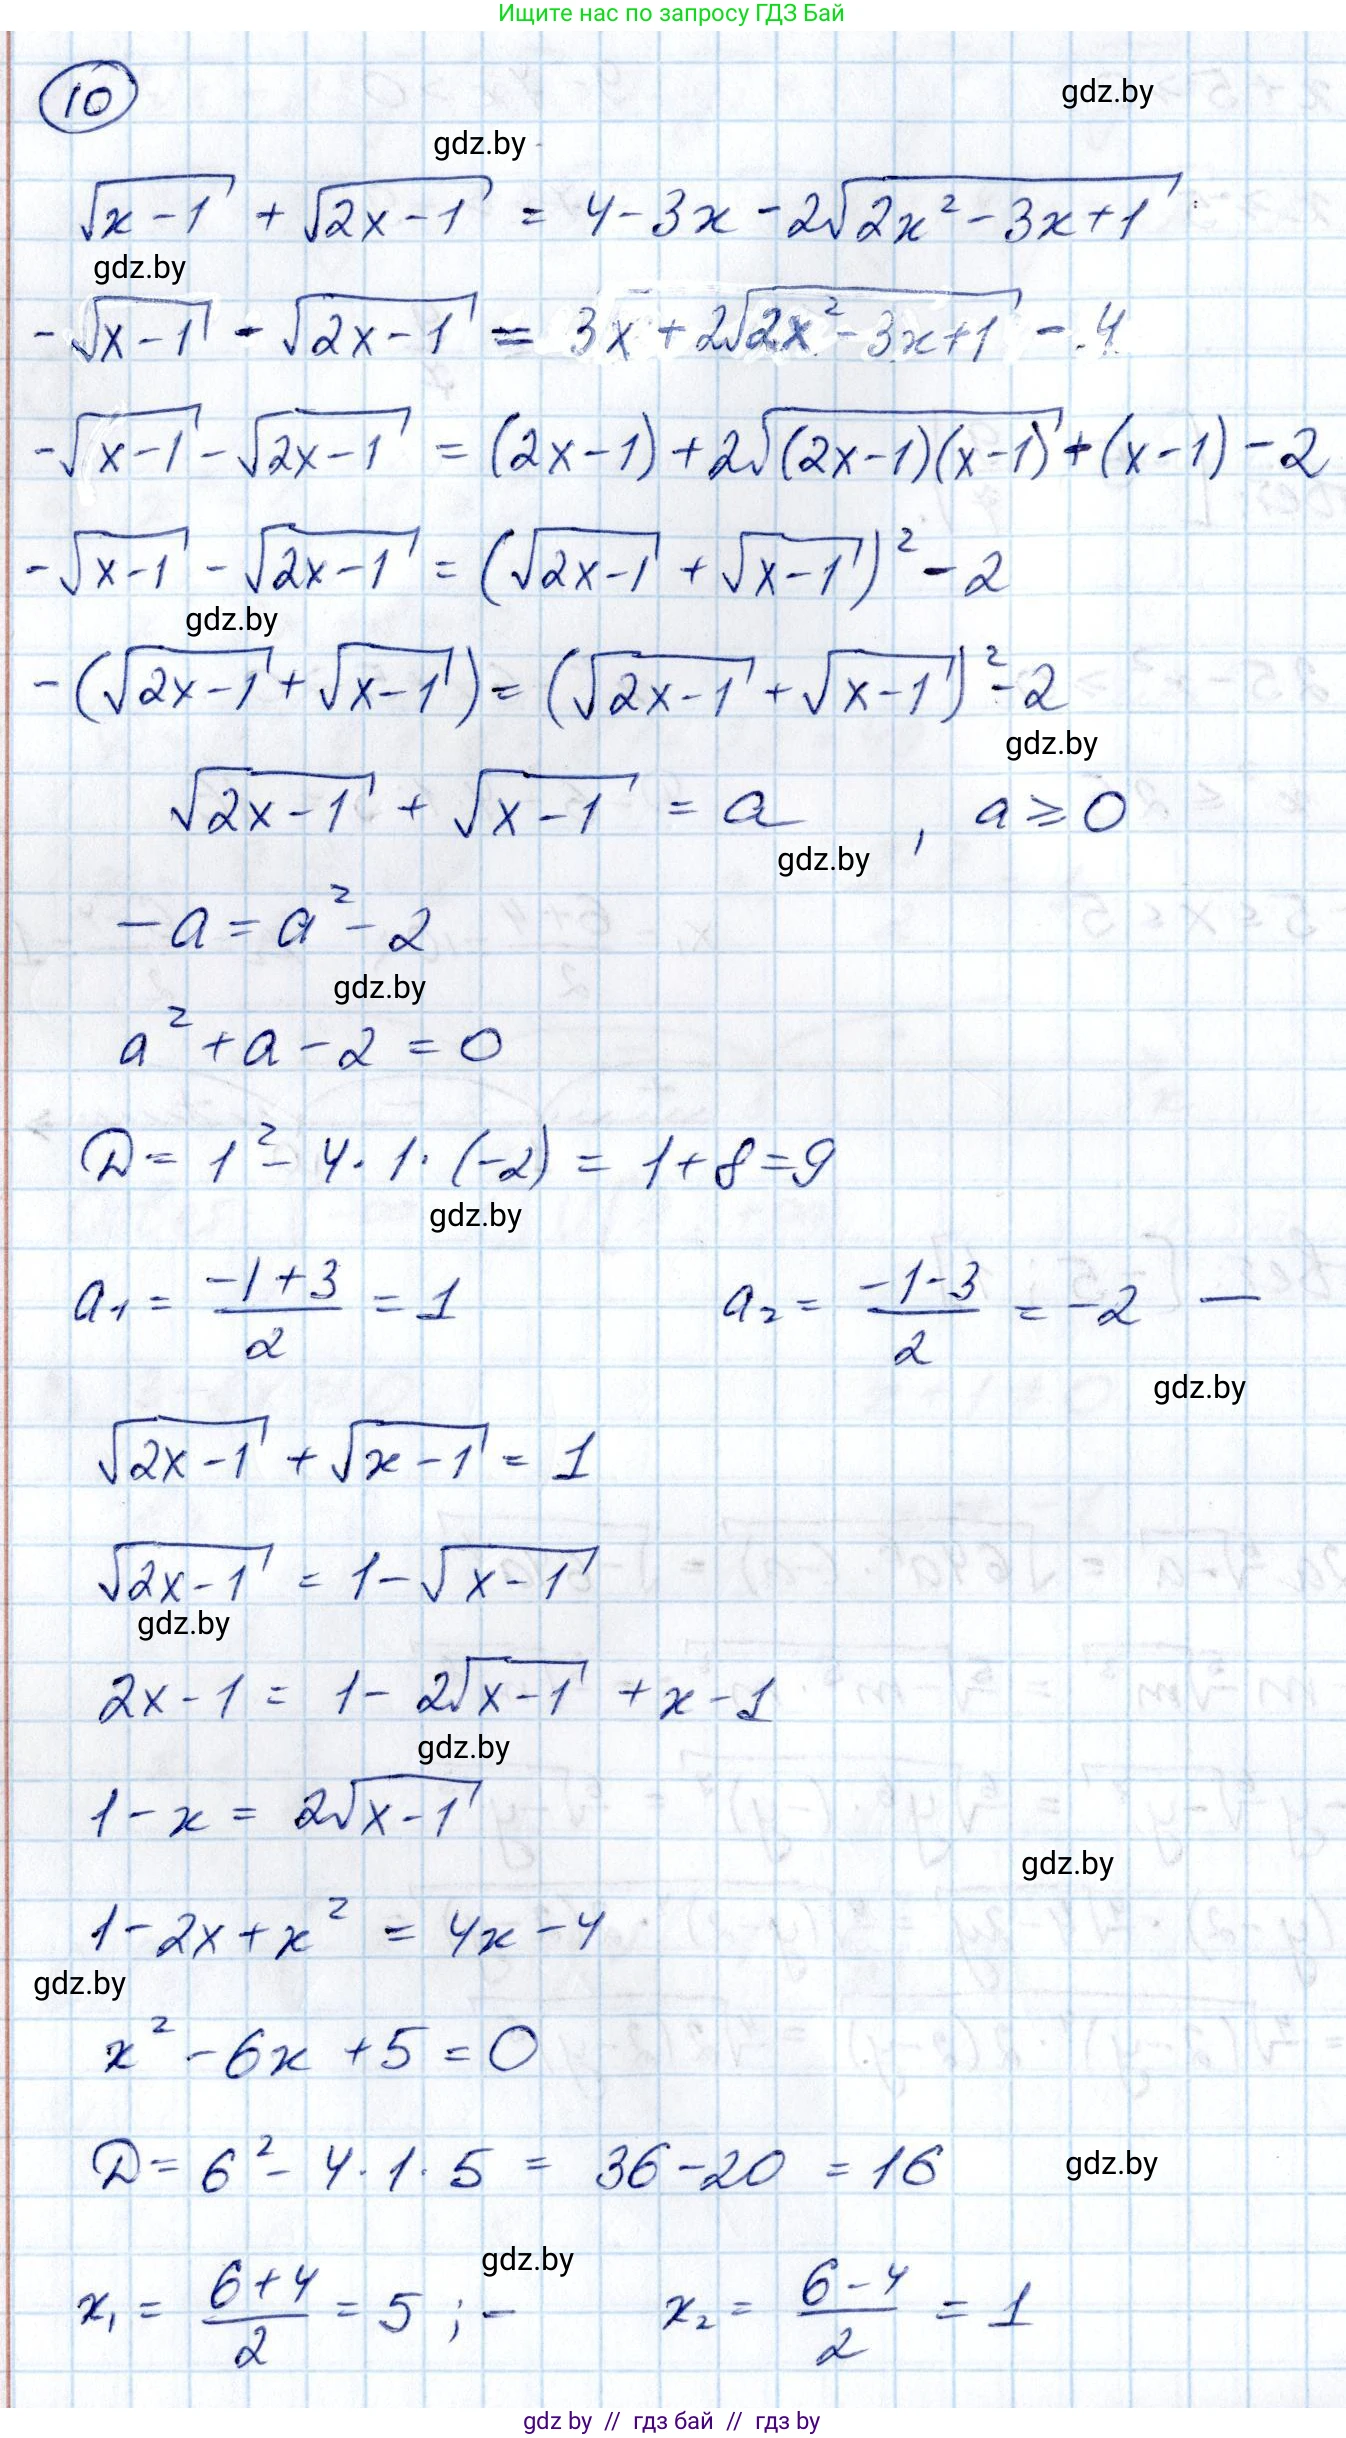 Ищите нас по запросу ГДЗ Бай
10
gdz.by
gdz.by
√(x-1) + √(2x-1) = 4-3x-2√(2x²-3x+1)
gdz.by
-√(x-1) - √(2x-1) = 3x+2√(2x²-3x+1) - 4
-√(x-1) - √(2x-1) = (2x-1)+2√((2x-1)(x-1))+(x-1)-2
-√(x-1) - √(2x-1) = (√(2x-1) + √(x-1))² - 2
gdz.by
-(√(2x-1) + √(x-1)) = (√(2x-1) + √(x-1))² - 2
gdz.by
√(2x-1) + √(x-1) = a , a ⩾ 0
gdz.by
-a = a² - 2
gdz.by
a² + a - 2 = 0
D = 1² - 4·1·(-2) = 1+8=9
gdz.by
a₁ = (-1+3)/2 = 1 a₂ = (-1-3)/2 = -2 —
gdz.by
√(2x-1) + √(x-1) = 1
√(2x-1) = 1-√(x-1)
gdz.by
2x-1 = 1-2√(x-1) + x-1
gdz.by
1-x = 2√(x-1)
gdz.by
1-2x+x² = 4x-4
gdz.by
x² - 6x + 5 = 0
D = 6² - 4·1·5 = 36-20 = 16
gdz.by
gdz.by
x₁ = (6+4)/2 = 5 ; - x₂ = (6-4)/2 = 1
gdz by // гдз бай // гдз by